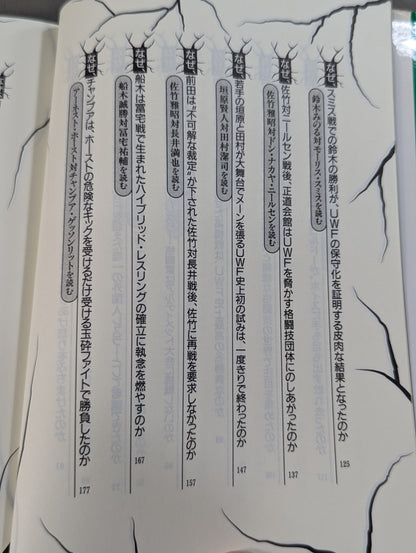 なぜ、スミス戦での鈴木の勝利が、UWFの保守化を証明する皮肉な結果となったのか 125
鈴木みのる対モーリス・スミスを読む
なぜ、佐竹対ニールセン戦後、正道会館はUWFを脅かす格闘技団体にのしあがったのか 137
佐竹雅昭対ドン・ナカヤ・ニールセンを読む
なぜ、若手の垣原と田村が大舞台でメーンを張るUWF史上初の試みは、一度きりで終わったのか 147
垣原賢人対田村潔司を読む
なぜ、前田は“不可解な裁定”が下された佐竹対長井戦後、佐竹に再戦を要求しなかったのか 157
佐竹雅昭対長井満也を読む
なぜ、船木は冨宅戦で生まれたハイブリッド・レスリングの確立に執念を燃やすのか 167
船木誠勝対冨宅祐輔を読む
なぜ、チャンプアは、ホーストの危険なキックを受けるだけ受ける玉砕ファイトで勝負したのか 177
アーネスト・ホースト対チャンプア・ゲッソンリットを読む